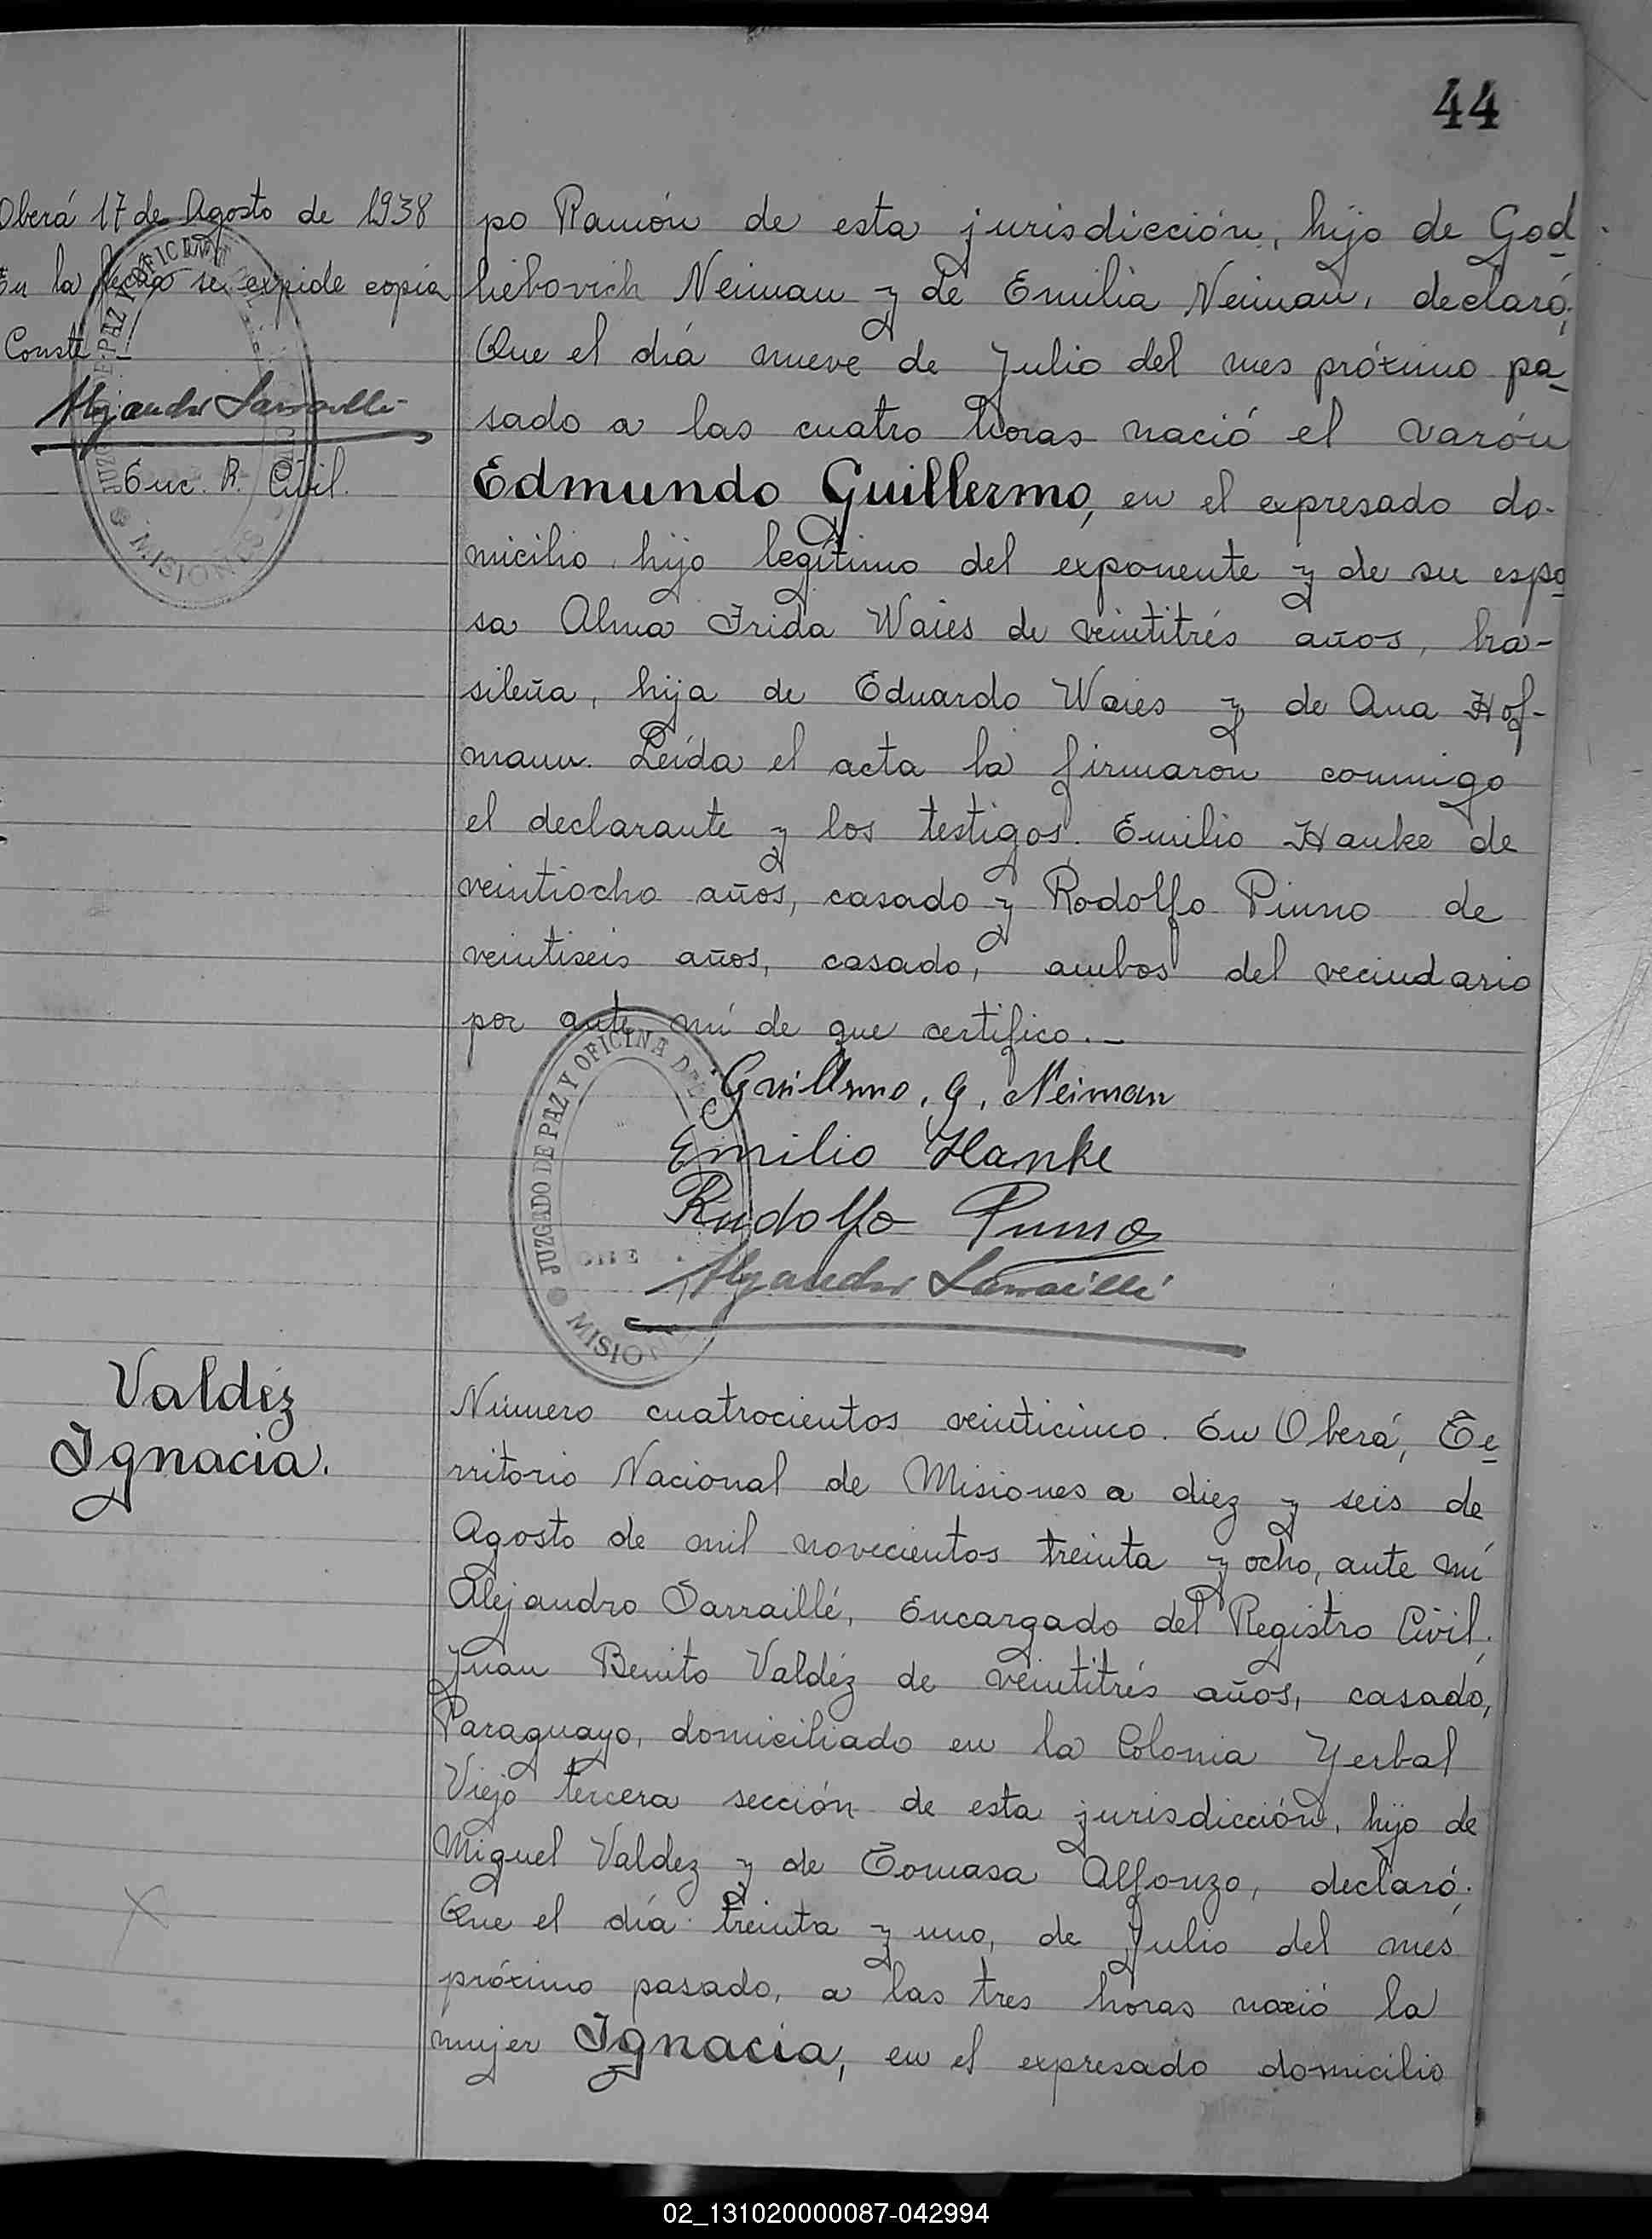 44
Oberá 17 de Agosto de 1938
En la fecha se expide copia
Conste
Alejandro Sarraillé
Enc. R. Civil.
JUZGADO DE PAZ Y OFICINA
MISIONES
po Ramón de esta jurisdicción, hijo de God
liebovich Neiman y de Emilia Neiman, declaró;
Que el día nueve de Julio del mes próximo pa-
sado a las cuatro horas nació el varón
Edmundo Guillermo, en el expresado do-
micilio, hijo legítimo del exponente y de su espo
sa Alma Frida Waies de veintitrés años, bra-
sileña, hija de Eduardo Waies y de Ana Hof-
mann. Leída el acta la firmaron conmigo
el declarante y los testigos. Emilio Hanke de
veintiocho años, casado y Rodolfo Pinno de
veintiseis años, casado, ambos del vecindario
por ante mí de que certifico.-
JUZGADO DE PAZ Y OFICINA DEL
MISIONES
Guillermo, G, Neiman
Emilio Hanke
Rudolfo Pinno
Alejandro Sarraillé
Valdéz
Ignacia.
Número cuatrocientos veinticinco. En Oberá, Te
rritorio Nacional de Misiones a diez y seis de
Agosto de mil novecientos treinta y ocho, ante mí
Alejandro Sarraillé, Encargado del Registro Civil,
Juan Benito Valdéz de veintitrés años, casado,
Paraguayo, domiciliado en la Colonia Yerbal
Viejo tercera sección de esta jurisdicción, hijo de
Miguel Valdez y de Tomasa Alfonzo, declaró;
Que el día treinta y uno, de Julio del mes
próximo pasado, a las tres horas nació la
mujer Ignacia, en el expresado domicilio
02_131020000087-042994